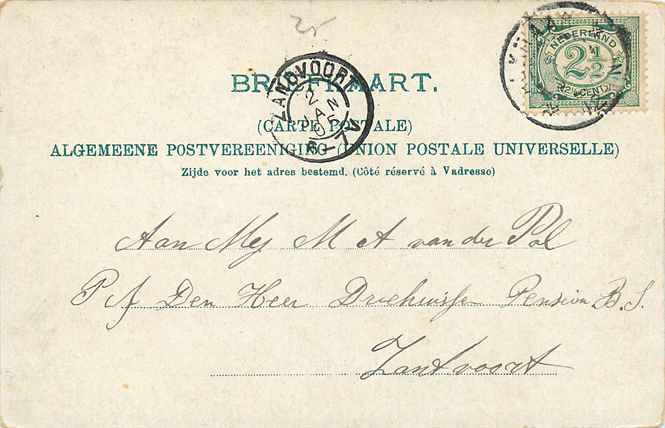 NEDERLAND
2½
CENT
ZANDVOORT
2
JAN
05
BRIEFKAART.
(CARTE POSTALE)
ALGEMEENE POSTVEREENIGING (UNION POSTALE UNIVERSELLE)
Zijde voor het adres bestemd. (Côté réservé à Vadresse)
Aan Mej M A van der Pol
P/f Den Heer Driehuisen Pension B.S.
Zantvoort